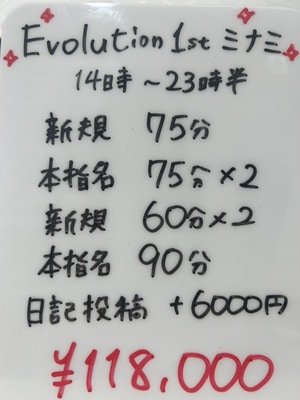 Evolution 1st ミナミ
14時 〜23時半
新規 75分
本指名 75分×2
新規 60分×2
本指名 90分
日記投稿 +6000円
¥118,000